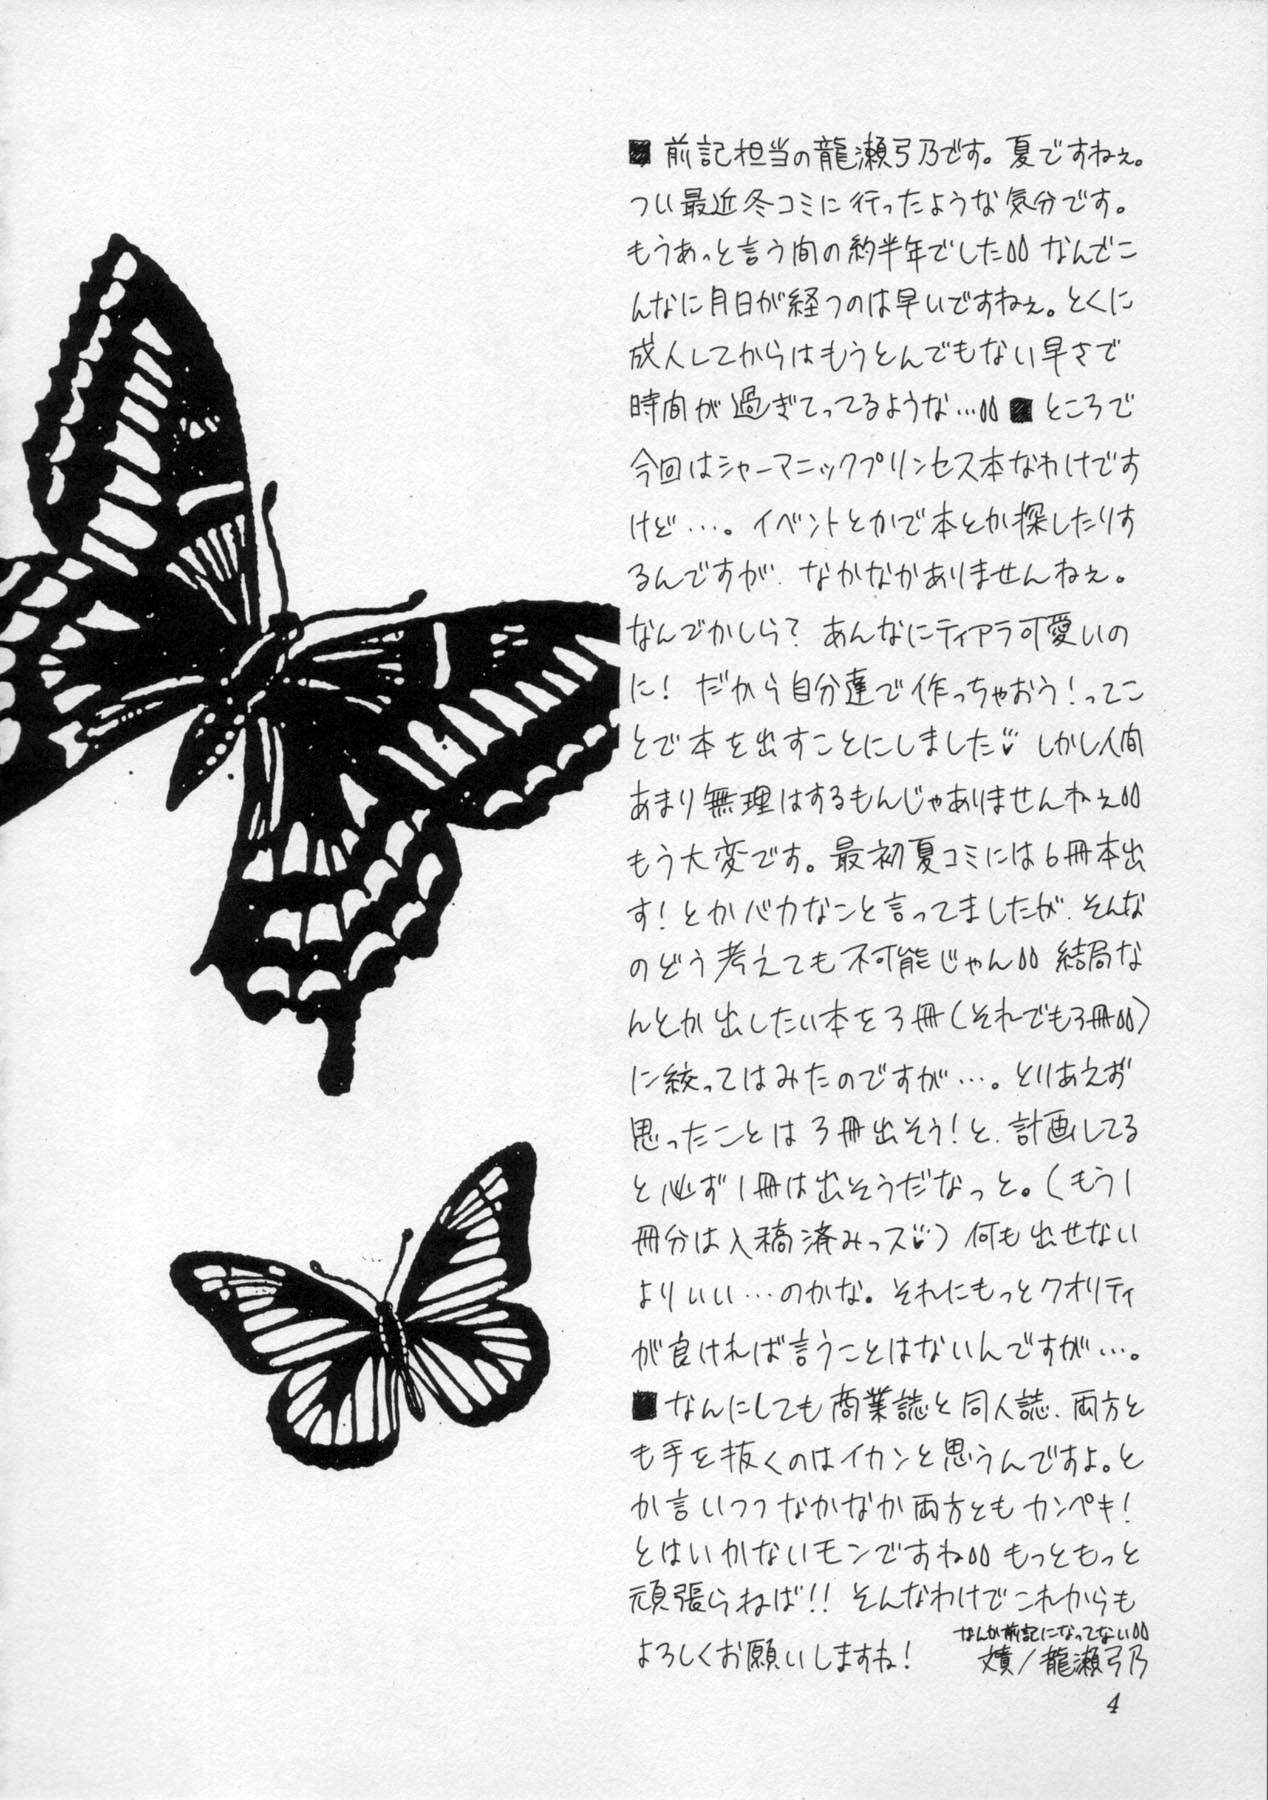 ■ 前記担当の龍瀬弓乃です。夏ですねぇ。
つい最近冬コミに行ったような気分です。
もうあっと言う間の約半年でした なんでこ
んなに月日が経つのは早いですねぇ。とくに
成人してからはもうとんでもない早さで
時間が過ぎてってるような… ■ ところで
今回はシャーマニックプリンセス本なわけです
けど…。イベントとかで本とか探したりす
るんですが、なかなかありませんねぇ。
なんでかしら? あんなにティアラ可愛いの
に! だから自分達で作っちゃおう!ってこ
とで本を出すことにしました♡ しかし人間
あまり無理はするもんじゃありませんねぇ
もう大変です。最初夏コミには6冊本出
す!とかバカなこと言ってましたが、そんな
のどう考えても不可能じゃん 結局な
んとか出したい本を3冊(それでも3冊)
に絞ってはみたのですが…。とりあえず
思ったことは3冊出そう!と、計画してる
と必ず1冊は出そうだなっと。(もう1
冊分は入稿済みっス♡) 何も出せない
よりいい…のかな。それにもっとクオリティ
が良ければ言うことはないんですが…。
■ なんにしても商業誌と同人誌、両方と
も手を抜くのはイカンと思うんですよ。と
か言いつつなかなか両方ともカンペキ!
とはいかないモンですね もっともっと
頑張らねば!! そんなわけでこれからも
よろしくお願いしますね!
なんか前記になってない
文責/龍瀬弓乃
4